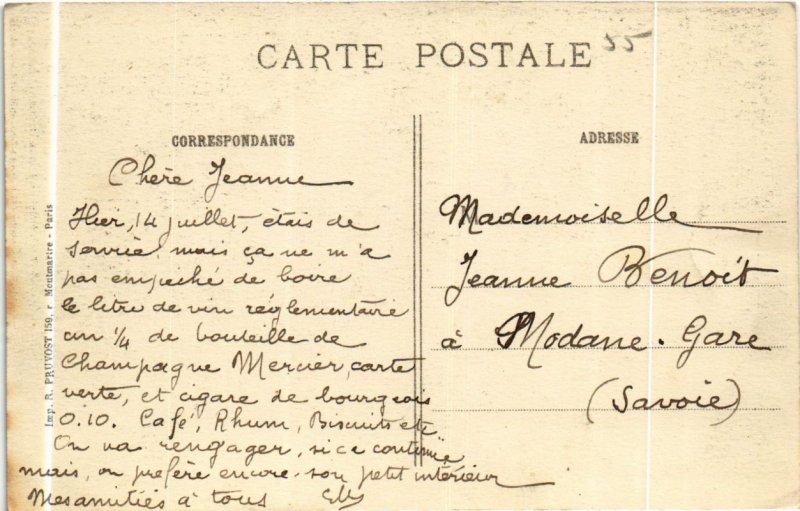 CARTE POSTALE
55
CORRESPONDANCE
Chère Jeanne
Hier, 14 juillet, étais de
service mais ça ne m'a
pas empêché de boire
le litre de vin réglementaire
un 1/4 de bouteille de
Champagne Mercier, carte
verte, et cigare de bourgeois
0.10. Café, Rhum, Biscuits etc
On va rengager, si ce continue
mais, on préfère encore son petit intérieur
Mes amitiés à tous
ADRESSE
Mademoiselle
Jeanne Benoit
à Modane-Gare
(Savoie)
Imp. R. PRUVOST 159, r Montmartre - Paris